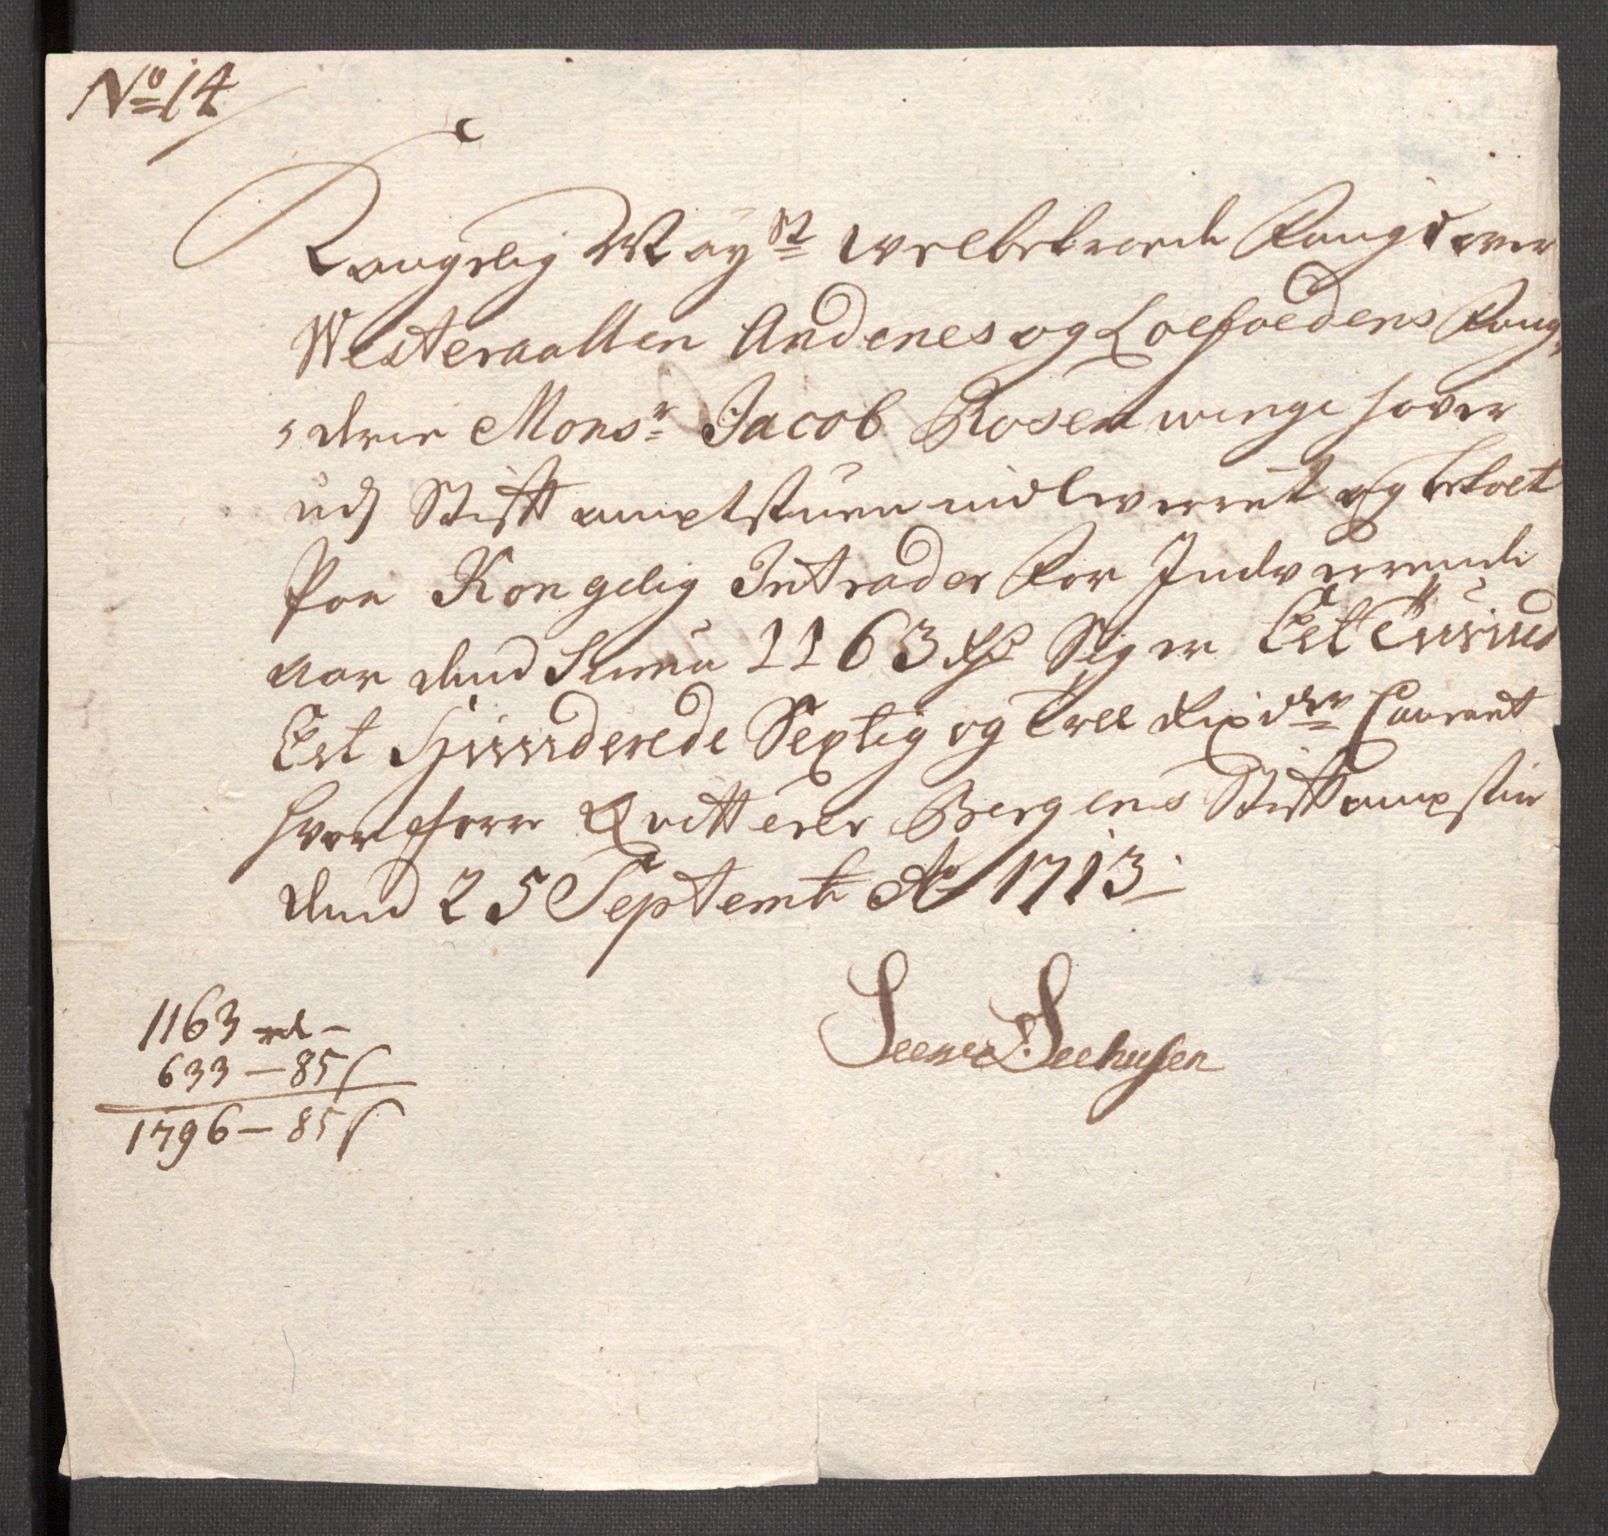 No 14
Kongelig Mayst welbetroede Fougd over
Westeraallen Andenes og Loefoedens Foug,
derie Monsr Jacob Rosenwinge haver
udj Stifft amptstuen indlewerret og betalt
Paa Kongelig Intrader For Indverrende
aar dend Suma 1163 Rd Siger Et Tusind
Et Hunderede Sextig og Tree Rixdr Courant
hvorfhore Qvitterer Bergens Stifft ampstue
dend 25 Septemb Ao 1713.
Seehusen
1163 rd –
633 – 85 s
1796 – 85 s